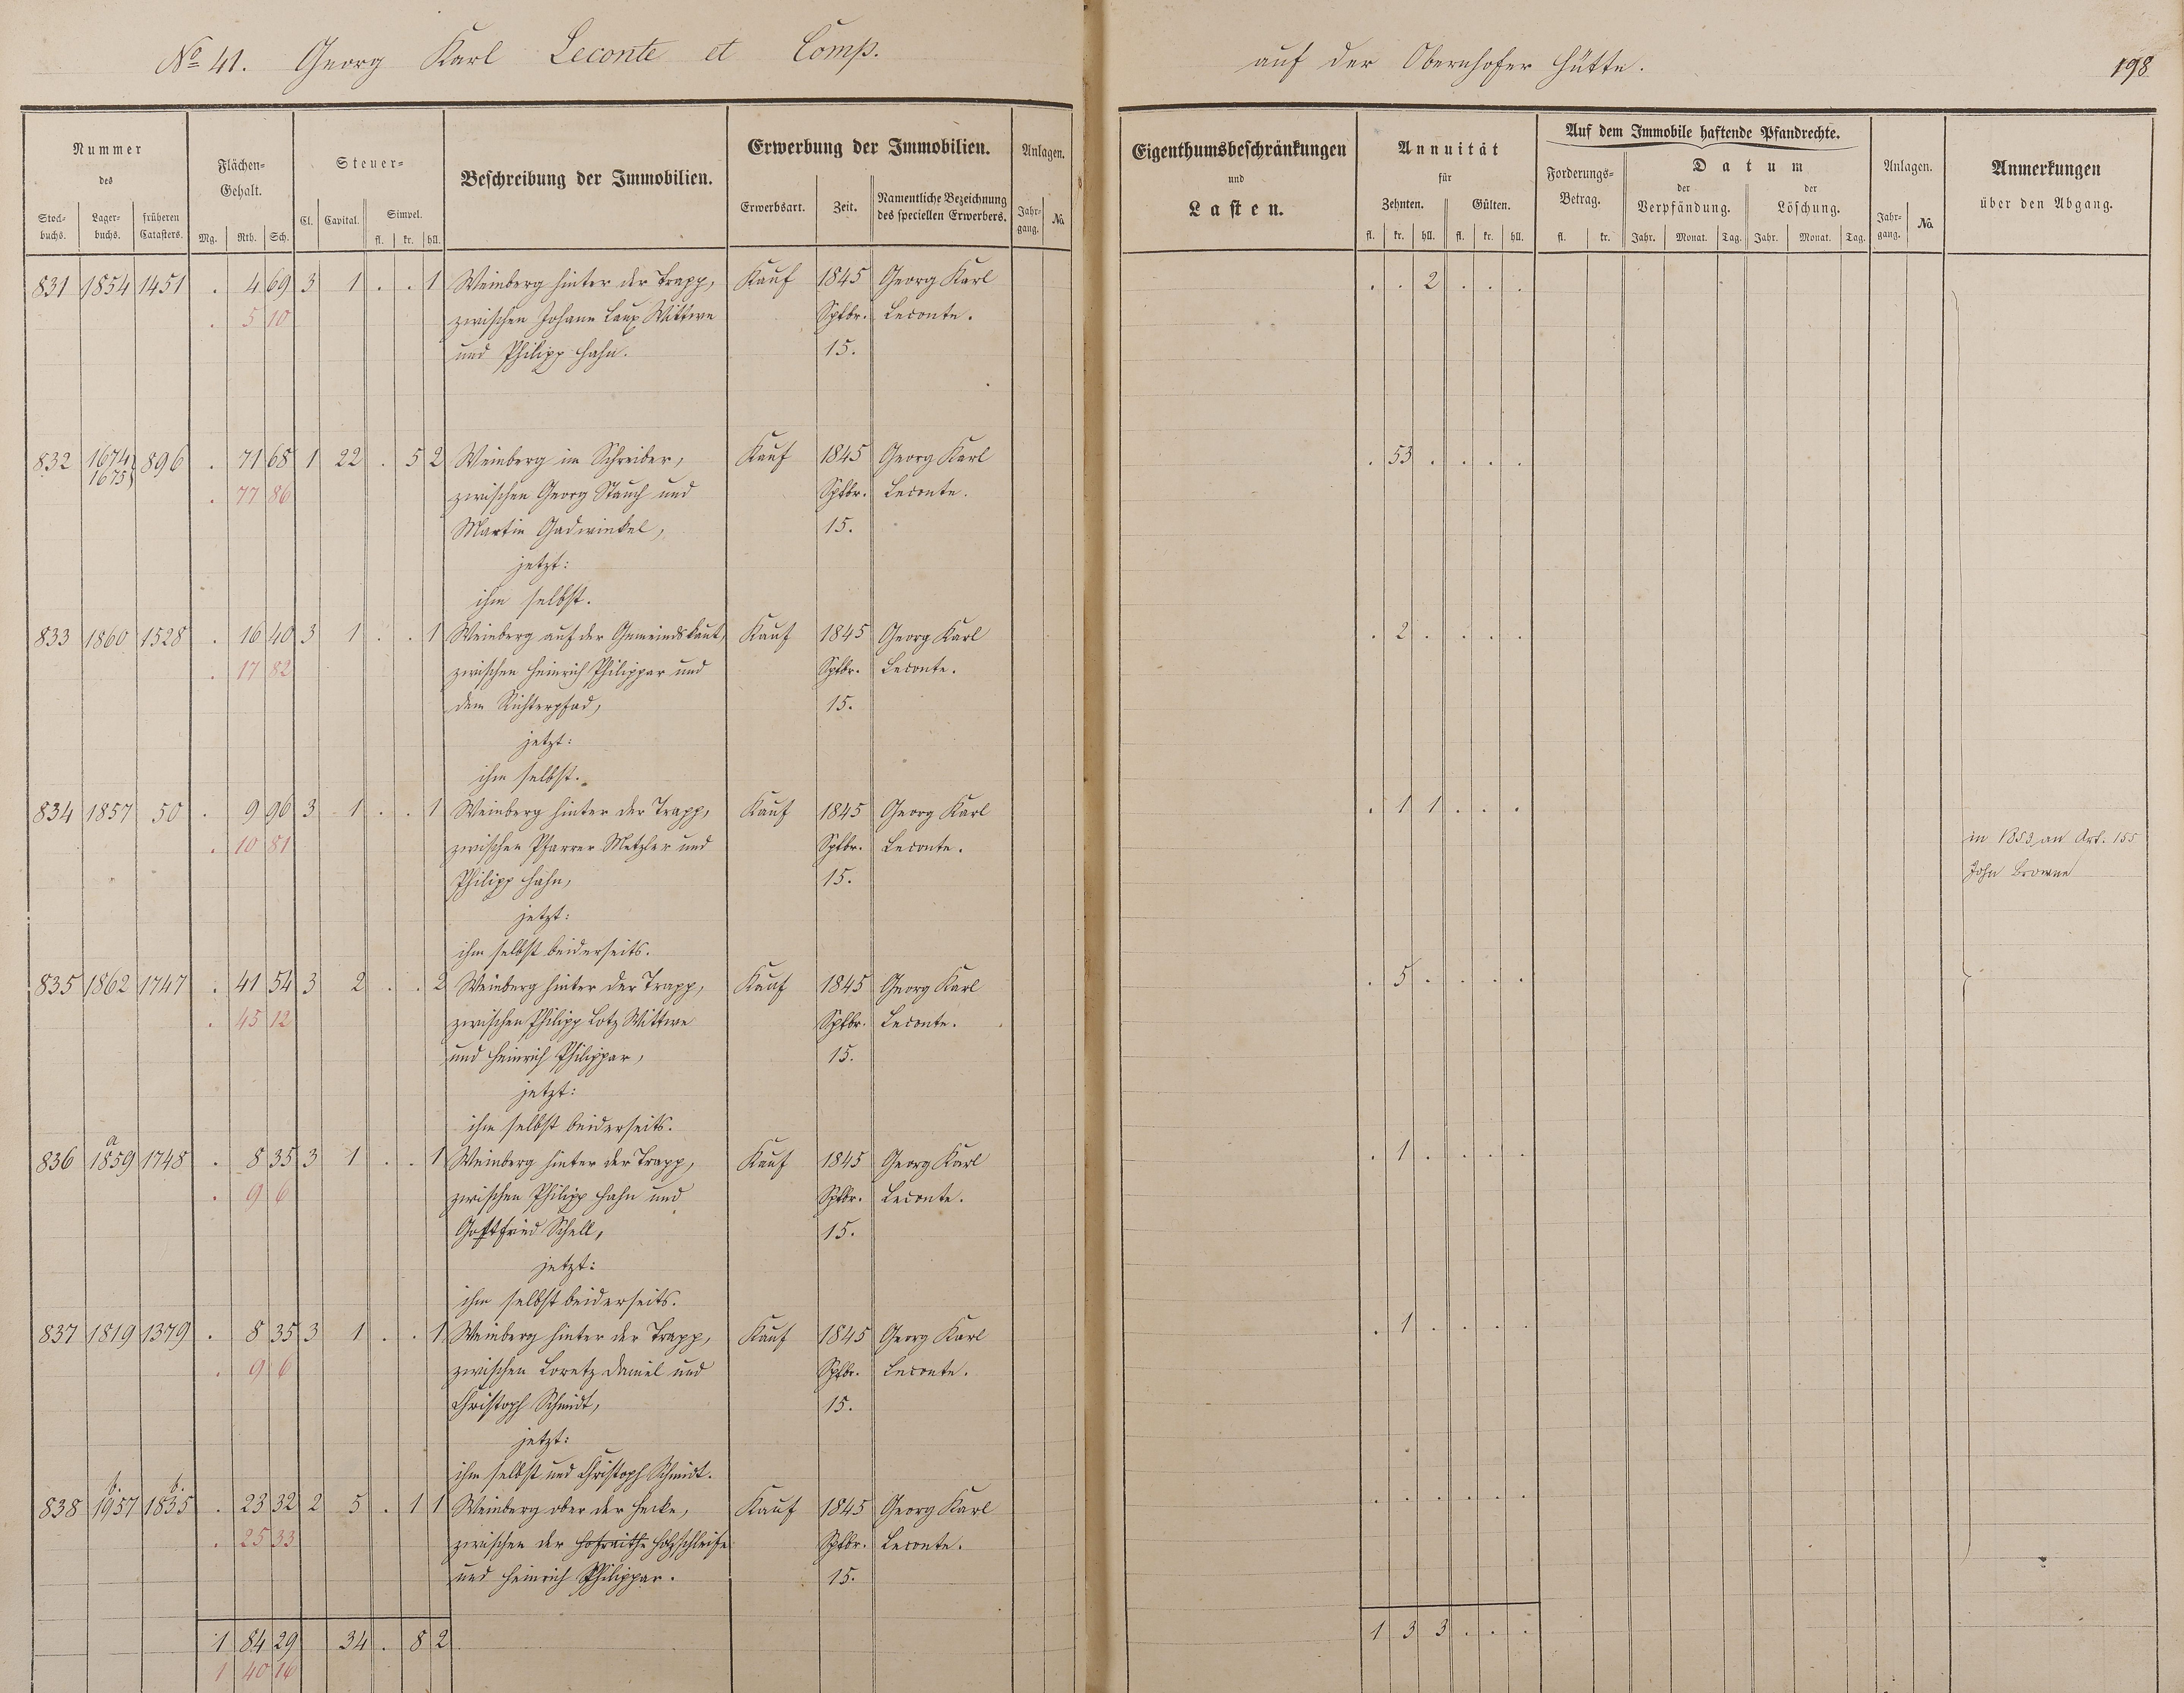 No 41. Georg Karl Leconte et Comp. auf der Obernhofer Hütte. 198
Nummer des
Stock-buchs. Lager-buchs. früheren Catasters.
Flächen-Gehalt.
Mg. Rth. Sch.
Steuer-
Cl. Capital. Simpel.
fl. kr. hll.
Beschreibung der Immobilien.
Erwerbung der Immobilien.
Erwerbsart. Zeit. Namentliche Bezeichnung des speciellen Erwerbers.
Anlagen.
Jahr-gang. No.
Eigenthumsbeschränkungen
und
Lasten.
Annuität
für
Zehnten. Gülten.
fl. kr. hll. fl. kr. hll.
Auf dem Immobile haftende Pfandrechte.
Forderungs-Betrag.
fl. kr.
Datum
der Verpfändung. der Löschung.
Jahr. Monat. Tag. Jahr. Monat. Tag.
Anlagen.
Jahr-gang. No.
Anmerkungen
über den Abgang.
831 1854 1451 . 4 69 3 1 . . 1 Weinberg hinter der Trapp, Kauf 1845 Georg Karl . . 2 . . .
. 5 10 zwischen Johann Laux Wittwe Sptbr. Leconte.
und Philipp Hahn. 15.
832 1674 1675 896 . 71 68 1 22 . 5 2 Weinberg im Schreiber, Kauf 1845 Georg Karl . 53 . . . .
. 77 86 zwischen Georg Stauch und Sptbr. Leconte.
Martin Gadwinkel, 15.
jetzt:
ihm selbst.
833 1860 1528 . 16 40 3 1 . . 1 Weinberg auf der Gemeindskaut, Kauf 1845 Georg Karl . 2 . . . .
. 17 82 zwischen Heinrich Philippar und Sptbr. Leconte.
dem Richterpfad, 15.
jetzt:
ihm selbst.
834 1857 50 . 9 96 3 1 . . 1 Weinberg hinter der Trapp, Kauf 1845 Georg Karl . 1 1 . . .
. 10 81 zwischen Pfarrer Metzler und Sptbr. Leconte. in 1853 an Art. 155
Philipp Hahn, 15. John Browne
jetzt:
ihm selbst beiderseits.
835 1862 1747 . 41 54 3 2 . . 2 Weinberg hinter der Trapp, Kauf 1845 Georg Karl . 5 . . . .
. 45 12 zwischen Philipp Lotz Wittwe Sptbr. Leconte.
und Heinrich Philippar, 15.
jetzt:
ihm selbst beiderseits.
836 1859 a 1748 . 8 35 3 1 . . 1 Weinberg hinter der Trapp, Kauf 1845 Georg Karl . 1 . . . .
. 9 6 zwischen Philipp Hahn und Sptbr. Leconte.
Gottfried Schell, 15.
jetzt:
ihm selbst beiderseits.
837 1819 1379 . 8 35 3 1 . . 1 Weinberg hinter der Trapp, Kauf 1845 Georg Karl . 1 . . . .
. 9 6 zwischen Loretz Daniel und Sptbr. Leconte.
Christoph Schmidt, 15.
jetzt:
ihm selbst und Christoph Schmidt.
838 1957 b. 1835 b. . 23 32 2 5 . 1 1 Weinberg ober der Hecke, Kauf 1845 Georg Karl . . . . . .
. 25 33 zwischen der Hofraithe Holzschleife Sptbr. Leconte.
und Heinrich Philippar. 15.
1 84 29 34 . 8 2 1 3 3 . . .
1 40 16